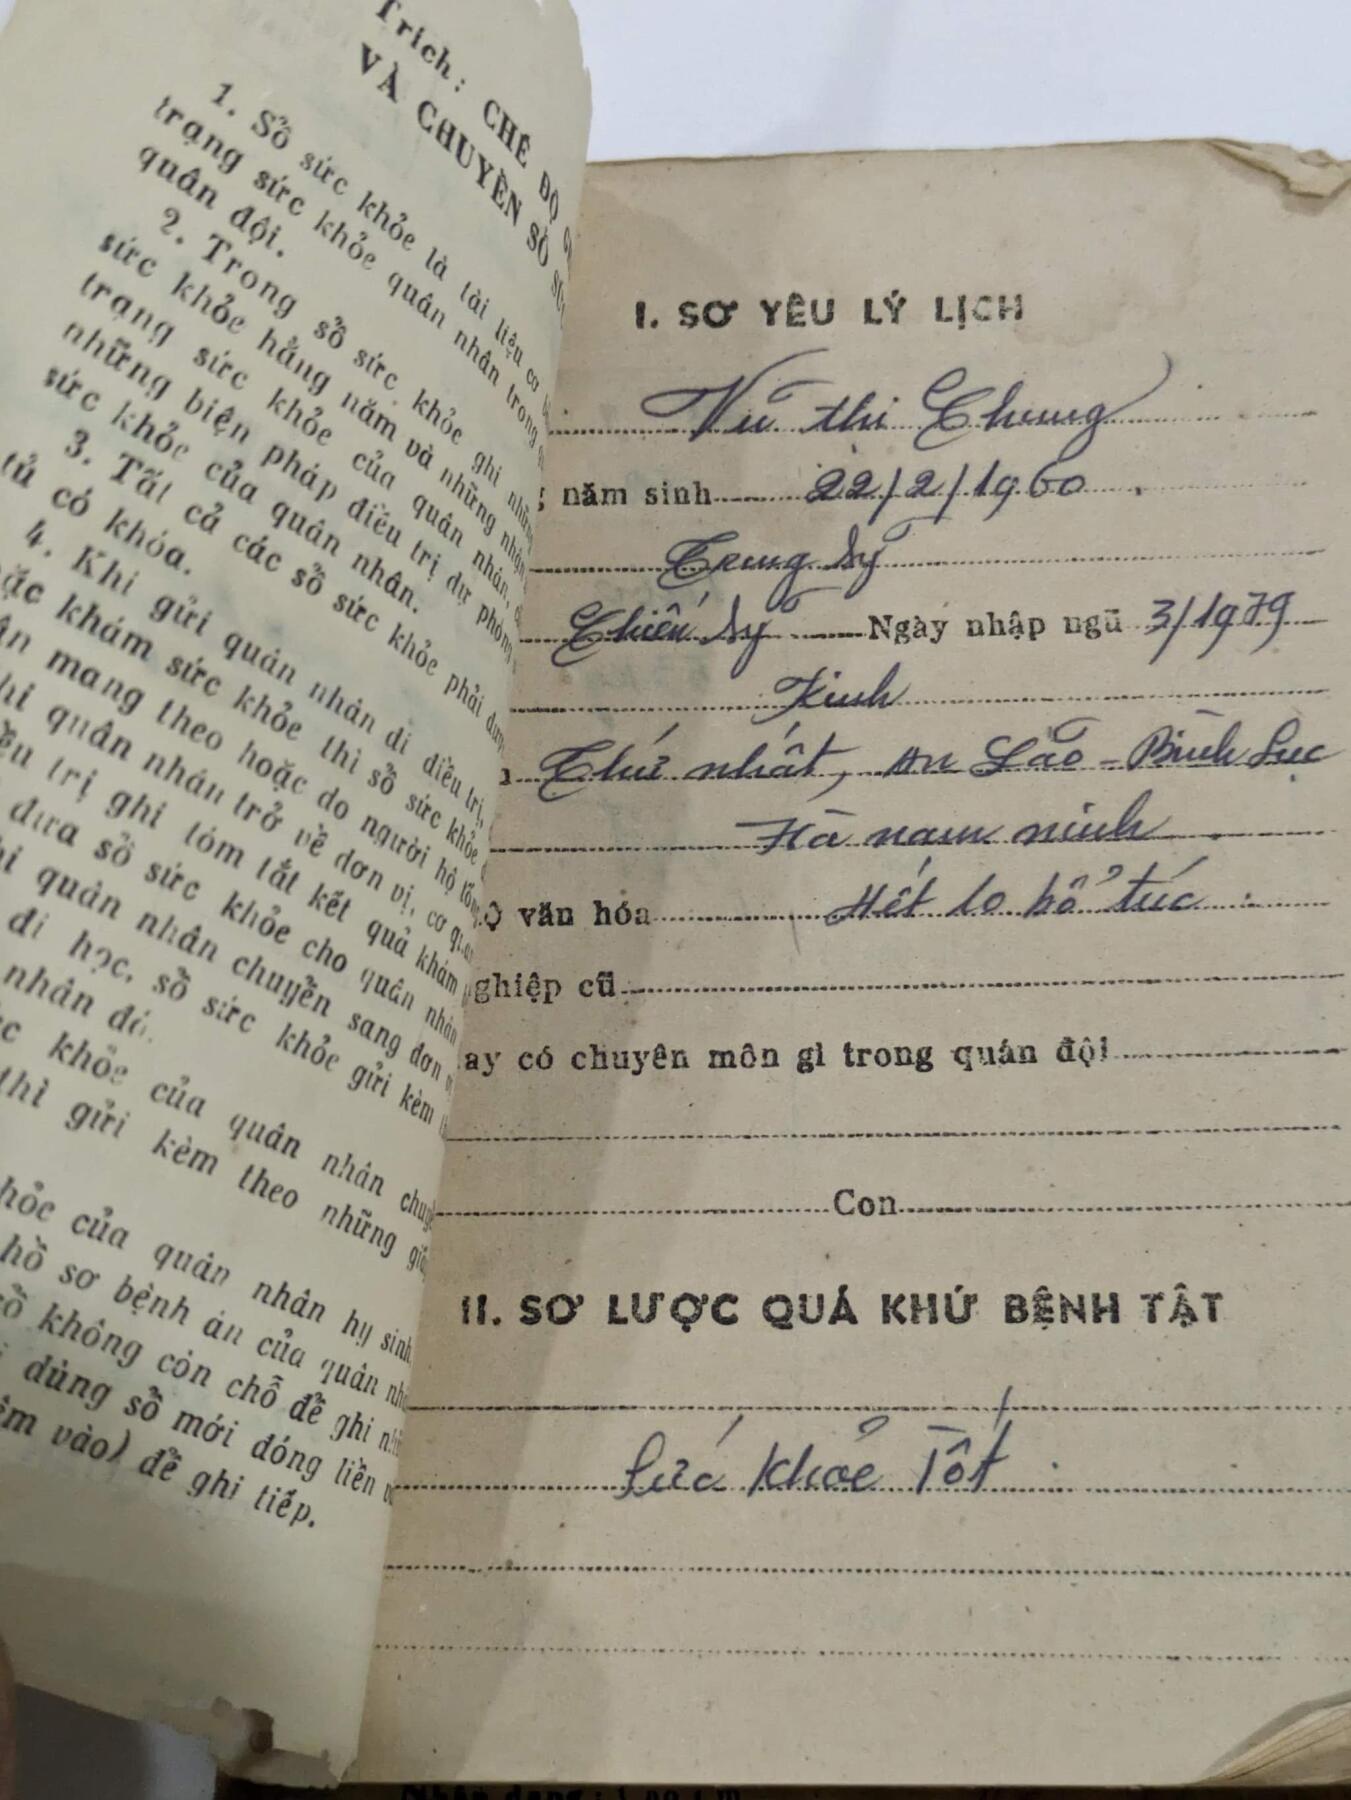 Trích: CHẾ ĐỘ
VÀ CHUYỂN SỔ
1. Sổ sức khỏe là tài liệu cơ
trạng sức khỏe quân nhân trong
quân đội.
2. Trong sổ sức khỏe ghi những
sức khỏe hằng năm và những nhận
trạng sức khỏe của quân nhân,
những biện pháp điều trị dự phòng
sức khỏe của quân nhân.
3. Tất cả các sổ sức khỏe phải
tủ có khóa.
4. Khi gửi quân nhân đi điều trị,
khám sức khỏe thì sổ sức khỏe
mang theo hoặc do người hộ tống
quân nhân trở về đơn vị, cơ quan
trị ghi tóm tắt kết quả khám
đưa sổ sức khỏe cho quân nhân
quân nhân chuyển sang đơn
đi học, sổ sức khỏe gửi kèm
nhân đó.
khỏe của quân nhân
thì gửi kèm theo những
của quân nhân hy sinh
hồ sơ bệnh án của quân
không còn chỗ để ghi
dùng sổ mới đóng liền
vào) để ghi tiếp.
I. SƠ YẾU LÝ LỊCH
Vũ thị Chung
năm sinh 22/2/1960
Trung sỹ
Chiến sỹ Ngày nhập ngũ 3/1979
Kinh
Thứ nhất, An Lão - Bình Lục
Hà nam ninh
văn hóa Hết 10 bổ túc.
cũ
có chuyên môn gì trong quân đội
Con
II. SƠ LƯỢC QUÁ KHỨ BỆNH TẬT
Sức khỏe Tốt.